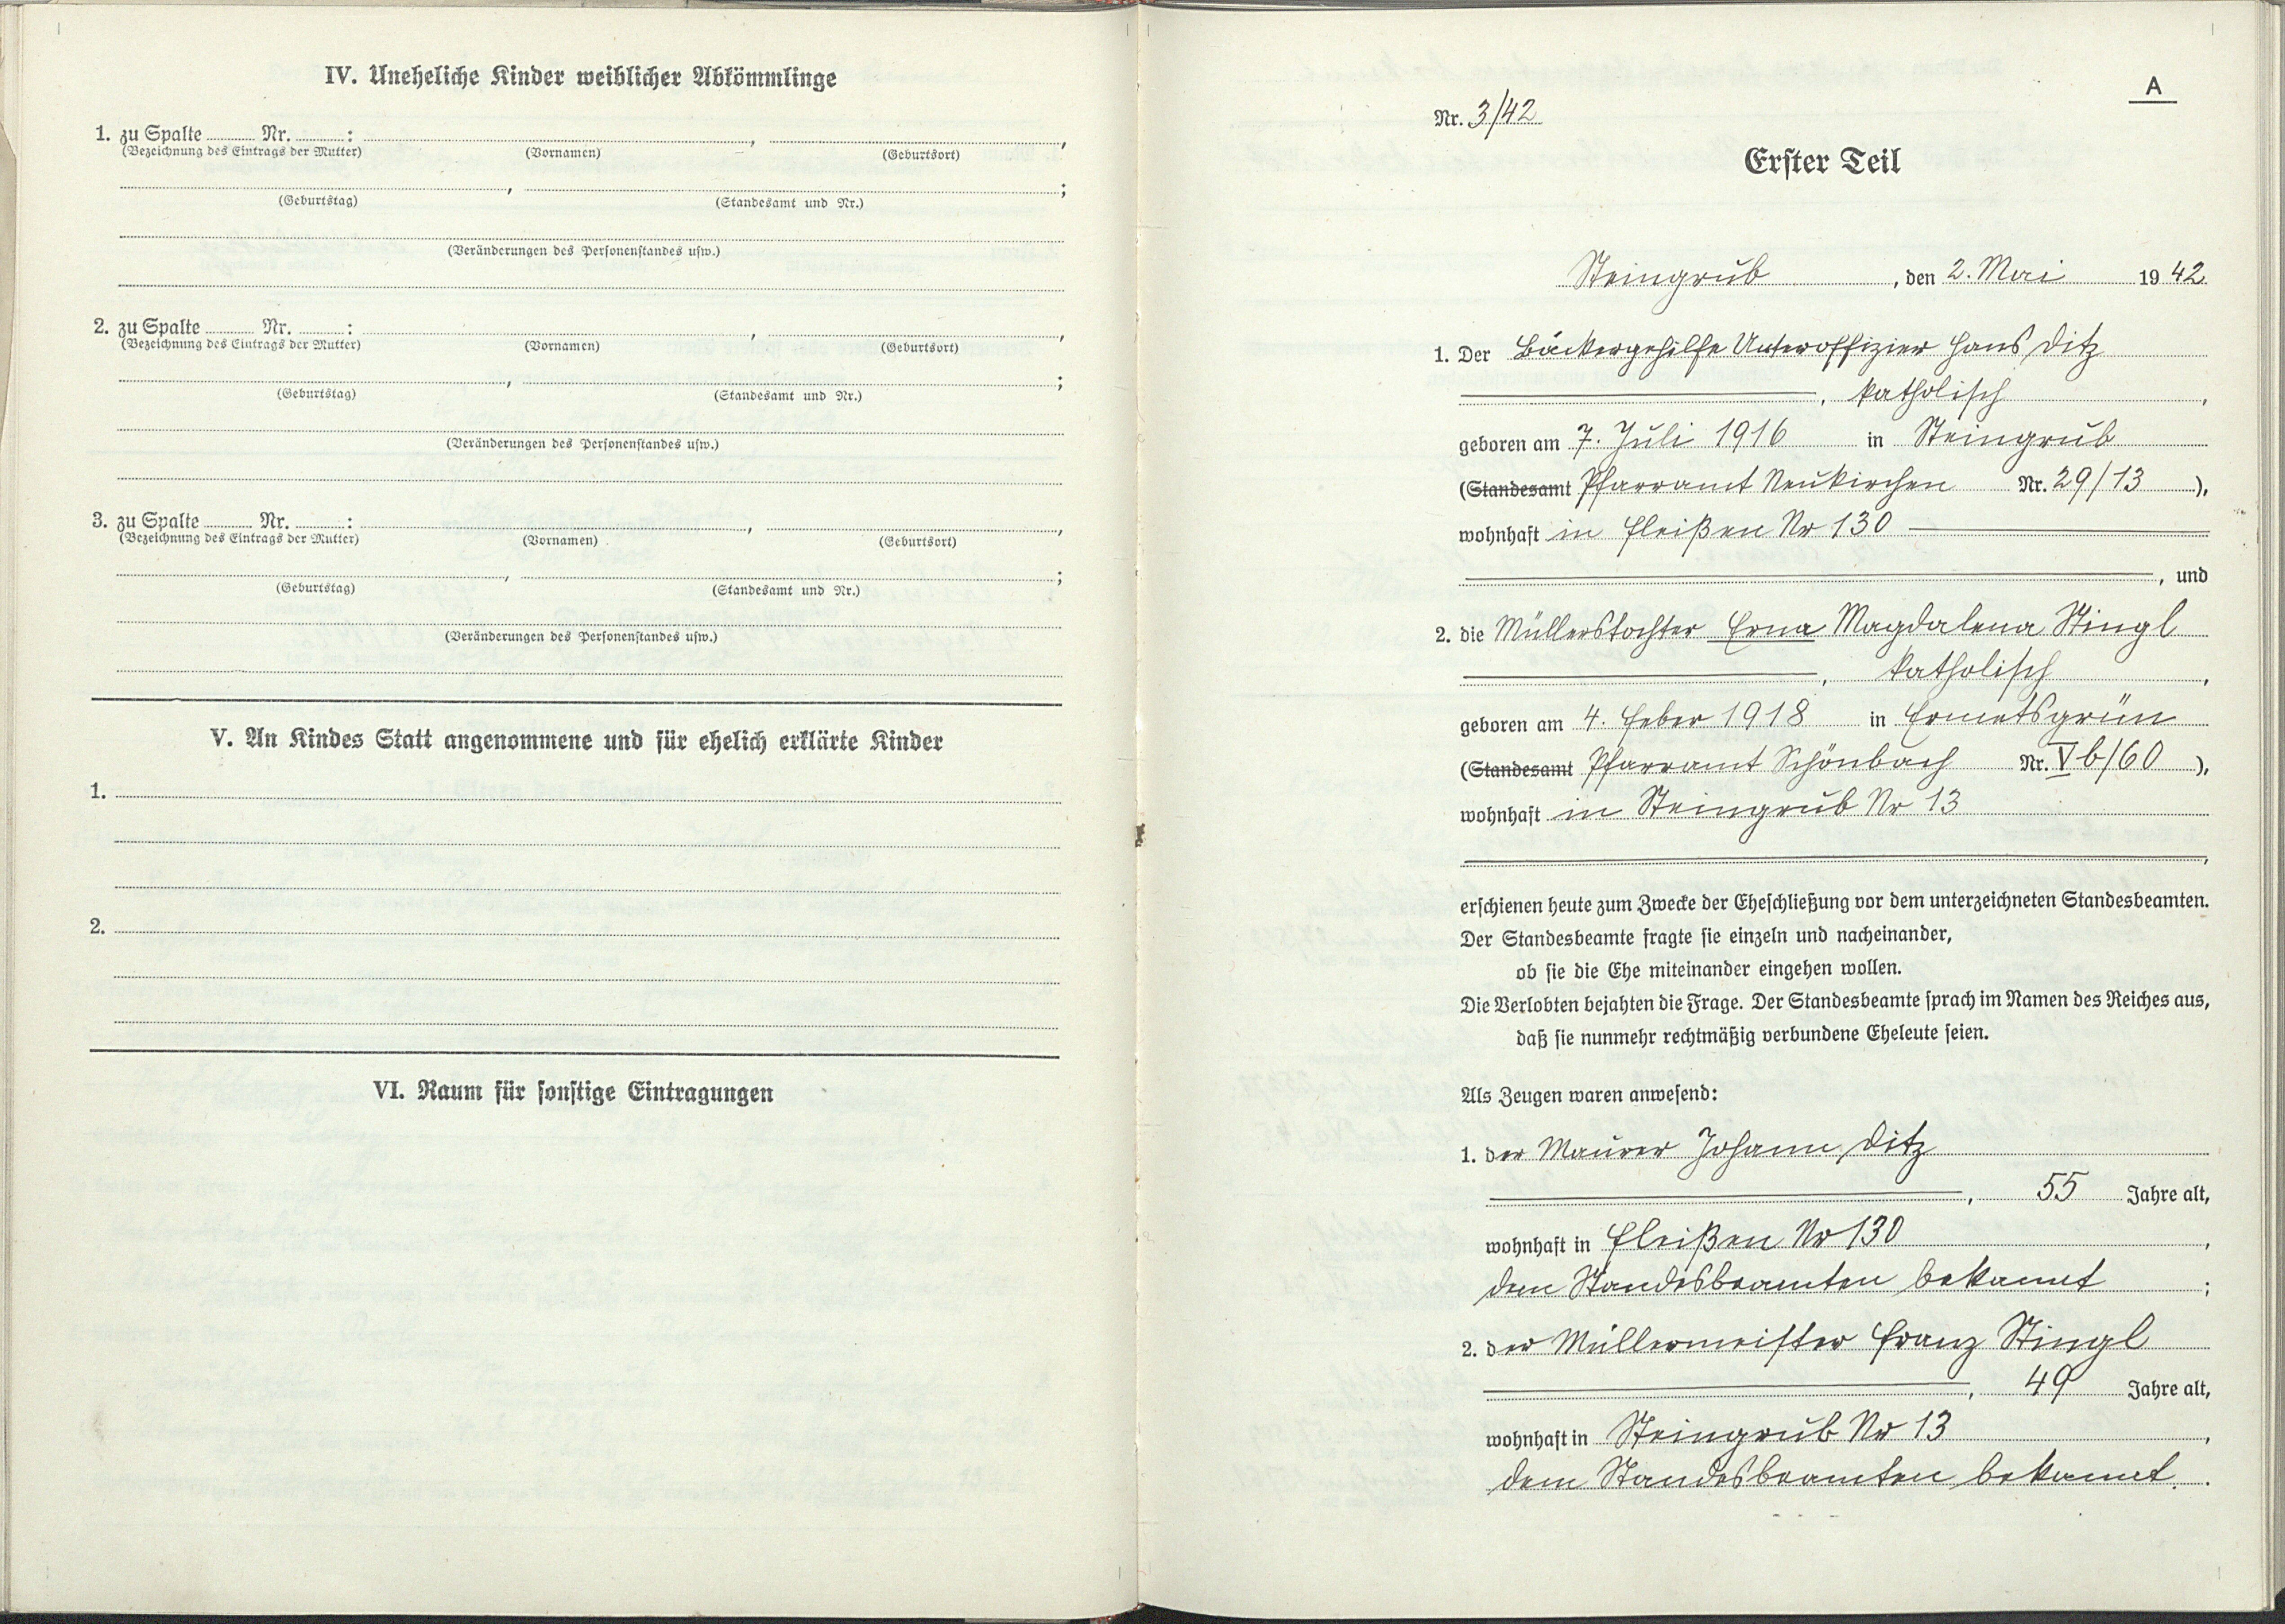 IV. Uneheliche Kinder weiblicher Abkömmlinge
1. zu Spalte ........ Nr. ........: ........, ........,
(Bezeichnung des Eintrags der Mutter) (Vornamen) (Geburtsort)
........, ........;
(Geburtstag) (Standesamt und Nr.)
(Veränderungen des Personenstandes usw.)
2. zu Spalte ........ Nr. ........: ........, ........,
(Bezeichnung des Eintrags der Mutter) (Vornamen) (Geburtsort)
........, ........;
(Geburtstag) (Standesamt und Nr.)
(Veränderungen des Personenstandes usw.)
3. zu Spalte ........ Nr. ........: ........, ........,
(Bezeichnung des Eintrags der Mutter) (Vornamen) (Geburtsort)
........, ........;
(Geburtstag) (Standesamt und Nr.)
(Veränderungen des Personenstandes usw.)
V. An Kindes Statt angenommene und für ehelich erklärte Kinder
1.
2.
VI. Raum für sonstige Eintragungen
A
Nr. 3/42
Erster Teil
Steingrub, den 2. Mai 1942
1. Der Bäckergehilfe Unteroffizier Hans Ditz
, katholisch,
geboren am 7. Juli 1916 in Steingrub
(Standesamt Pfarramt Neukirchen Nr. 29/13),
wohnhaft in Fleißen Nr 130
, und
2. die Müllerstochter Erna Magdalena Stingl
, katholisch,
geboren am 4. Feber 1918 in Ermetsgrün
(Standesamt Pfarramt Schönbach Nr. V b/60),
wohnhaft in Steingrub Nr 13
,
erschienen heute zum Zwecke der Eheschließung vor dem unterzeichneten Standesbeamten.
Der Standesbeamte fragte sie einzeln und nacheinander,
ob sie die Ehe miteinander eingehen wollen.
Die Verlobten bejahten die Frage. Der Standesbeamte sprach im Namen des Reiches aus,
daß sie nunmehr rechtmäßig verbundene Eheleute seien.
Als Zeugen waren anwesend:
1. der Maurer Johann Ditz
, 55 Jahre alt,
wohnhaft in Fleißen Nr 130,
dem Standesbeamten bekannt;
2. der Müllermeister Franz Stingl
, 49 Jahre alt,
wohnhaft in Steingrub Nr 13,
dem Standesbeamten bekannt.